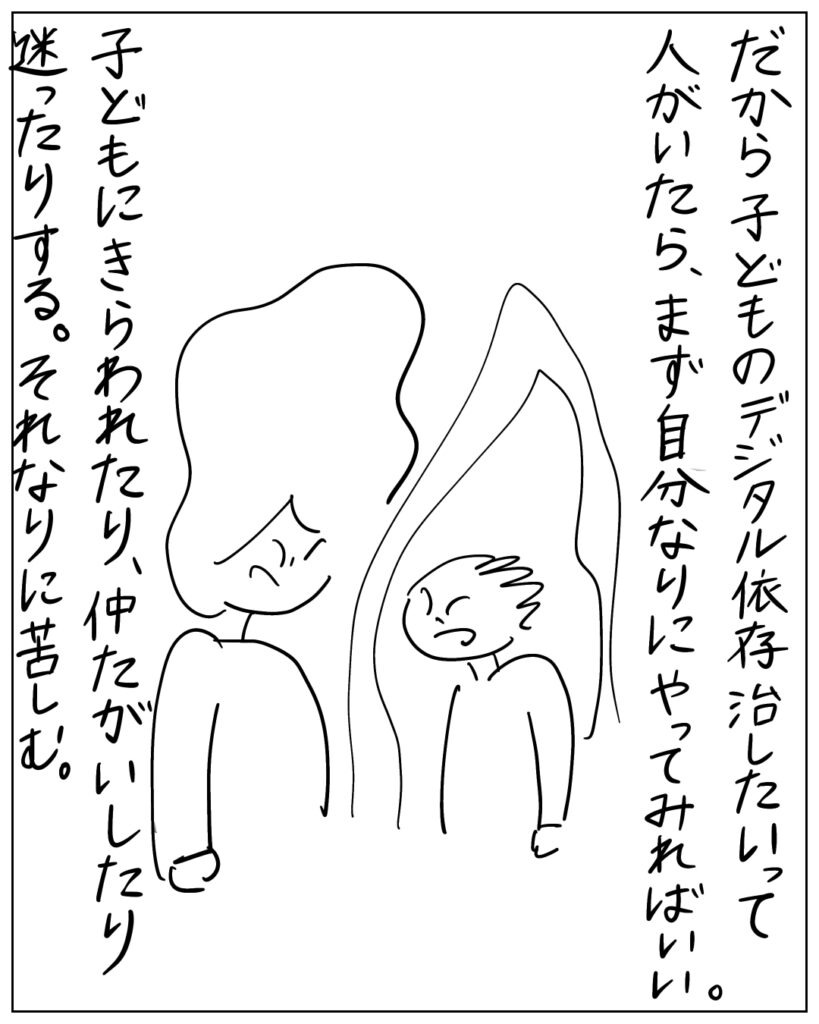 だから子どものデジタル依存治したいって
人がいたら、まず自分なりにやってみればいい。
子どもにきらわれたり、仲たがいしたり
迷ったりする。それなりに苦しむ。